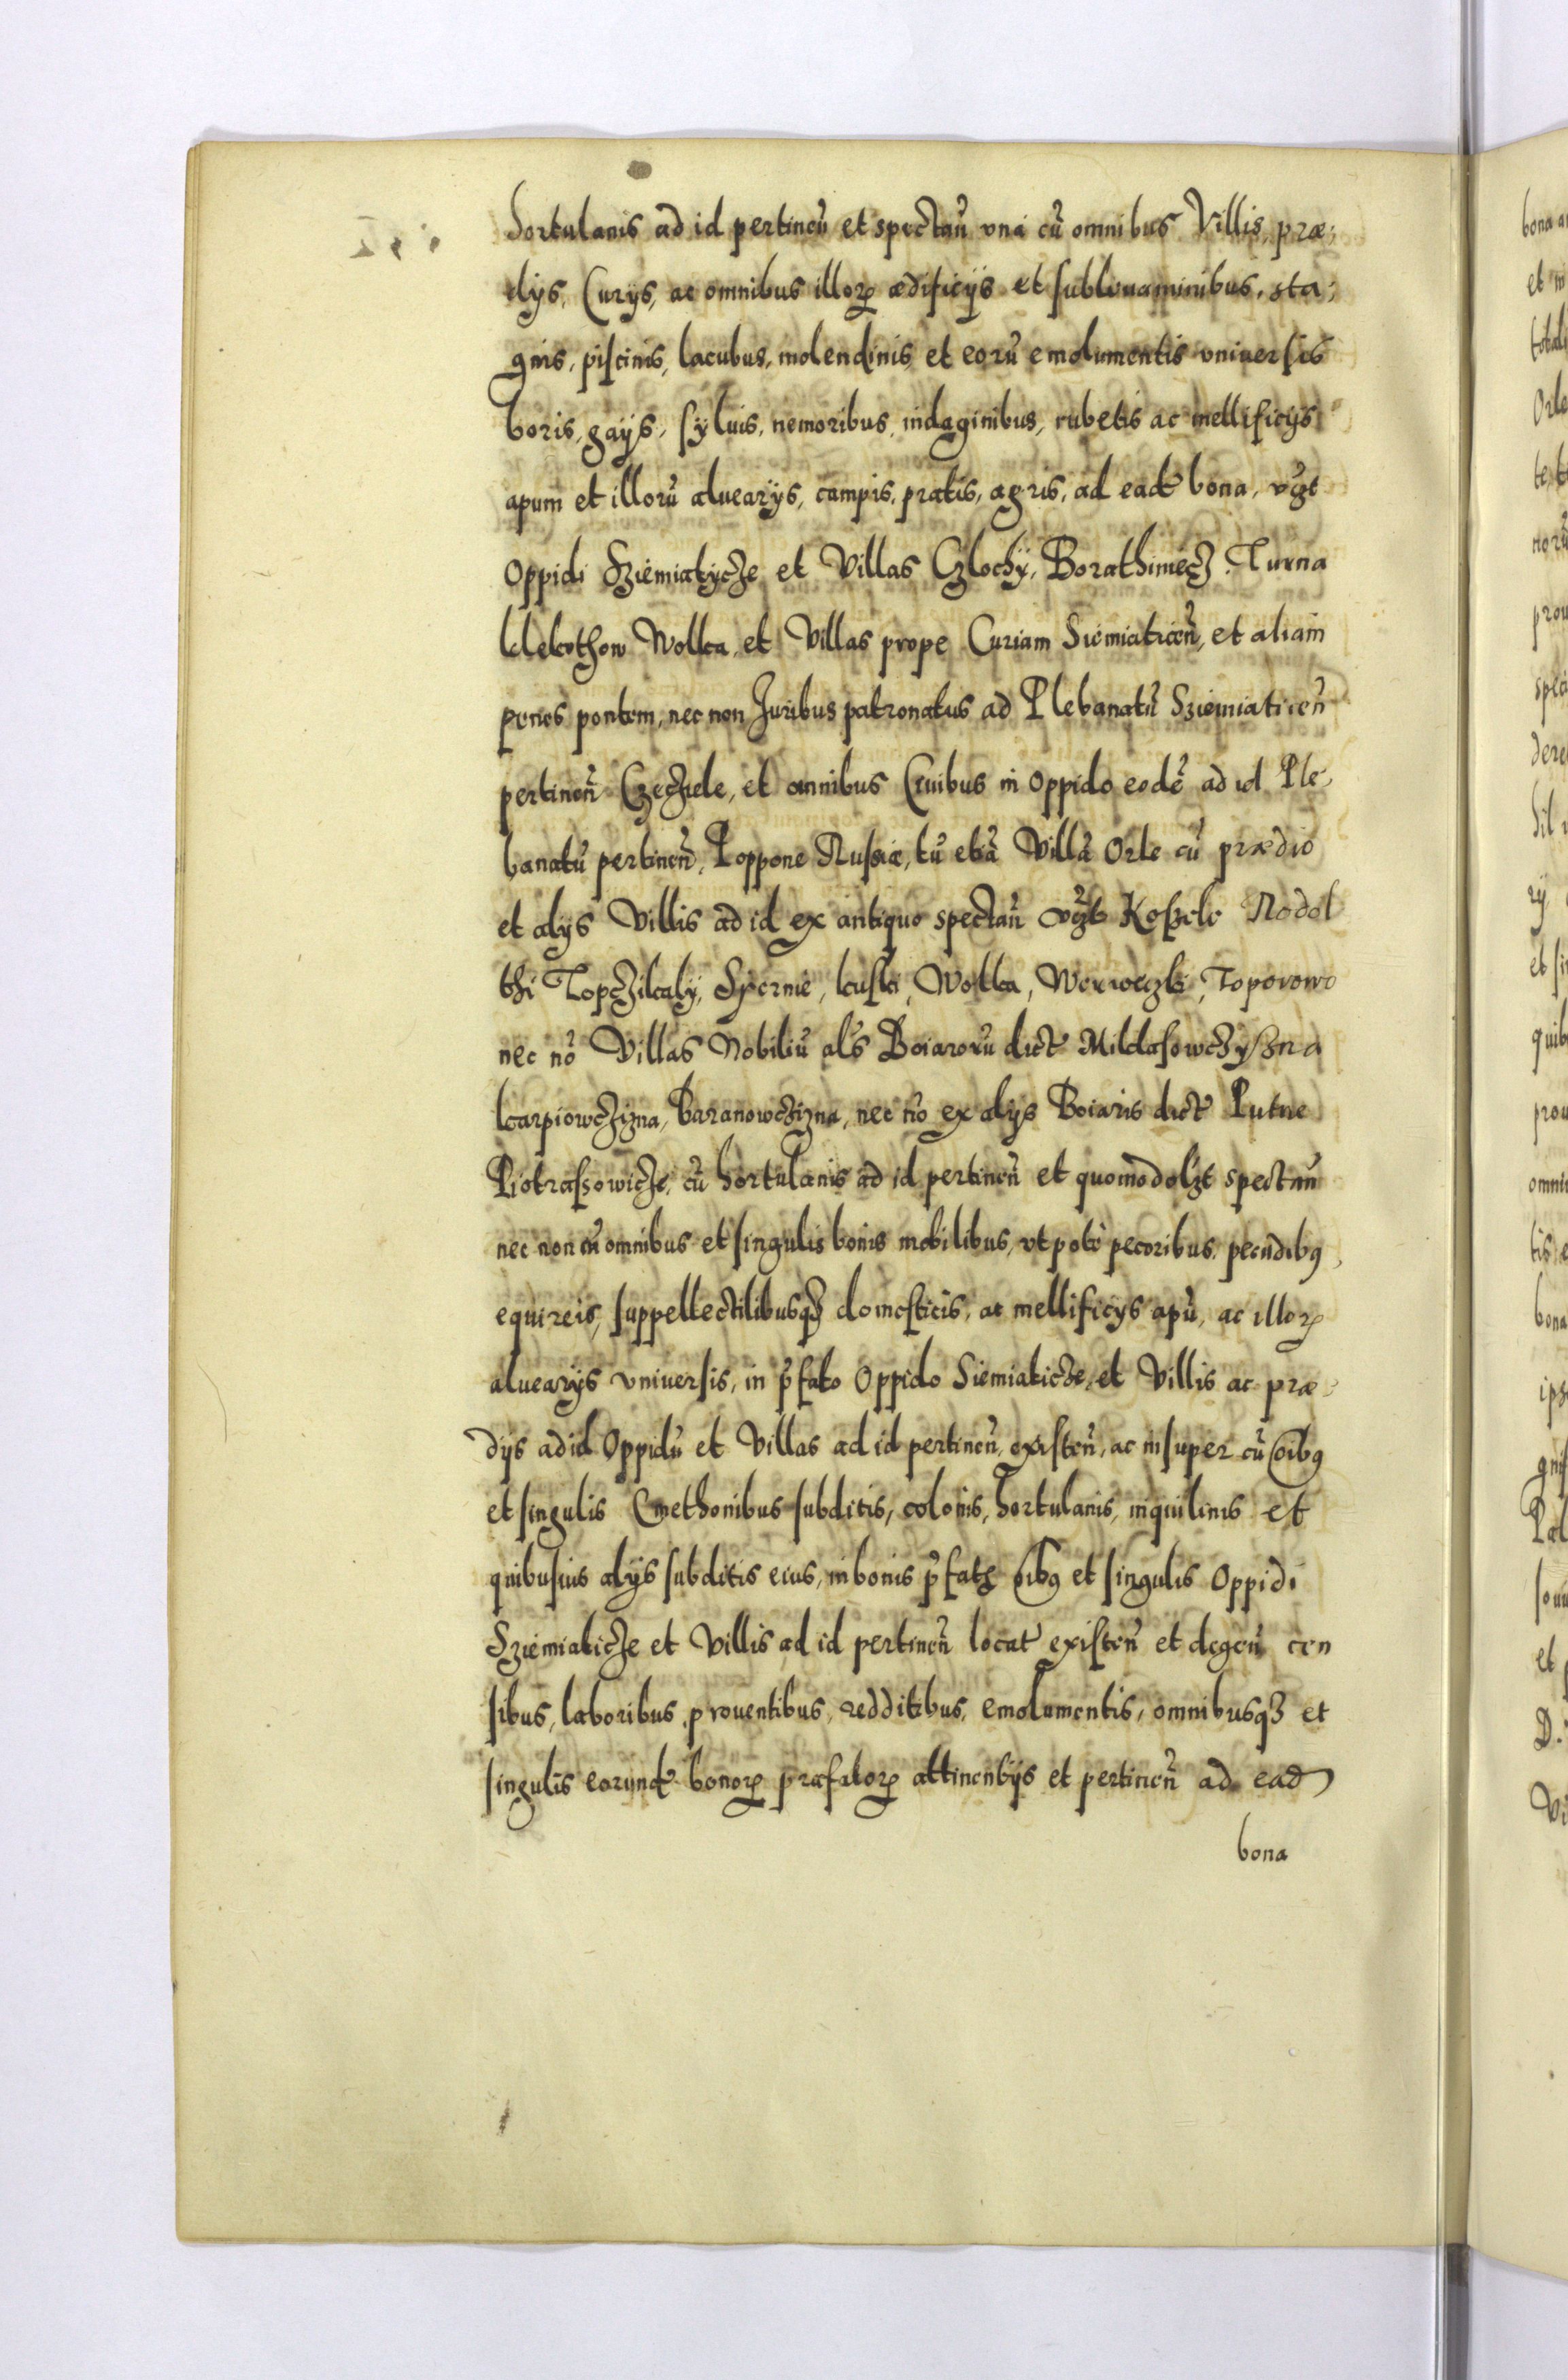 hortulanis ad id pertineñ et spectañ vna cũ omnibus Villis, præ;
dÿs, Curÿs, ac omnibus illoꝝ ædificÿs et subleuaminibus, sta;
gnis, piscinis, lacubus, molendinis et eorũ emolumentis vniuersis
boris, gaÿs, sÿluis, nemoribus, indaginibus, rubetis ac mellificÿs
apum et illorũ aluearÿs, campis, pratis, agris, ad ead bona, vzt
Oppidi Sziemiatycze et Villas Czlochÿ, Borathiniecz, Turna
klekothow Wolka, et Villas prope Curiam Siemiaticeñ, et aliam
penes pontem, nec non Juribus patronatus ad Plebanatũ Sziemiaticeñ
pertineñ Czecziele, et omnibus Ciuibus in Oppido eodẽ ad id Ple,
banatũ pertineñ, Poppone Russiæ, tũ etiã Villã Orle cũ prædio
et alÿs Villis ad id ex antiquo spectañ vzt Koszele Redol
thi Topczikalÿ, Spernie, kuski, Wolka, Werweczki, Toporowo
nec nõ Villas Nobiliũ al̃s Boiarorũ dict Mildasowczyszna
karpiowczizna, Baranowczizna, nec nõ ex alÿs Boiaris dict Putne
Piotrassowicze, cũ hortulanis ad id pertineñ et quomodolzt spectañ
nec non cũ omnibus et singulis bonis mobilibus, vt pote pecoribus, pecudibꝫ,
equireis, suppellectilibusqꝫ domesticis, ac mellificÿs apũ, ac illoꝝ
aluearÿs vniuersis, in p̃fato Oppido Siemiaticze, et Villis ac præ;
dÿs ad id Oppidũ et Villas ad id pertineñ, existeñ, ac insuper cũ oĩbꝫ
et singulis Cmethonibus subditis, colonis, hortulanis, inquilinis et
quibusuis alÿs subditis eius, in bonis p̃fatꝭ oĩbꝫ et singulis Oppidi
Sziemiaticze et Villis ad id pertineñ locat existeñ et degeñ cen
sibus, laboribus, prouentibus, redditibus, emolumentis, omnibusqꝫ et
singulis eorund bonoꝝ præfatoꝝ attinentÿs et pertineñ ad ead
bona